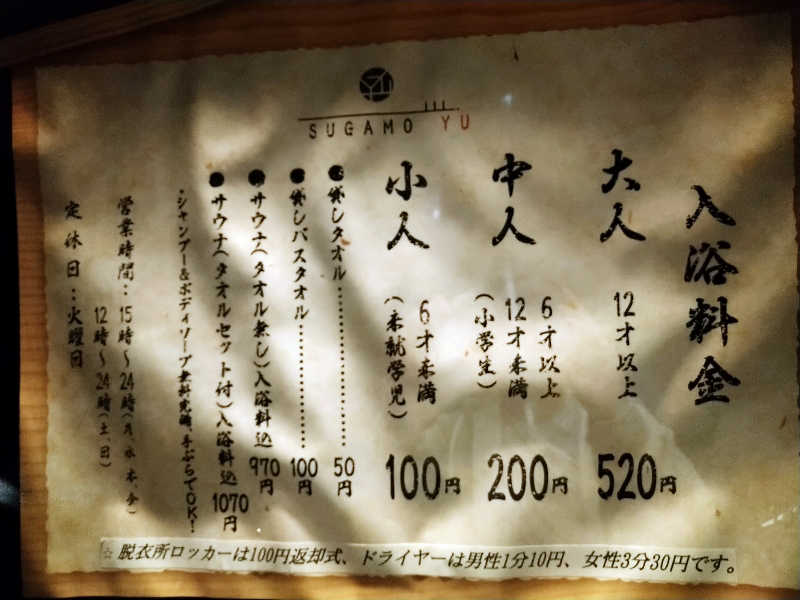 SUGAMO YU
入浴料金
大人
12才以上
520円
中人
6才以上
12才未満
(小学生)
200円
小人
6才未満
(未就学児)
100円
●貸しタオル……………50円
●貸しバスタオル…………100円
●サウナ(タオル無し)入浴料込 970円
●サウナ(タオルセット付)入浴料込 1070円
・シャンプー&ボディソープ無料完備、手ぶらでOK!
営業時間:15時~24時(月、水、木、金)
12時~24時(土、日)
定休日:火曜日
☆脱衣所ロッカーは100円返却式、ドライヤーは男性1分10円、女性3分30円です。